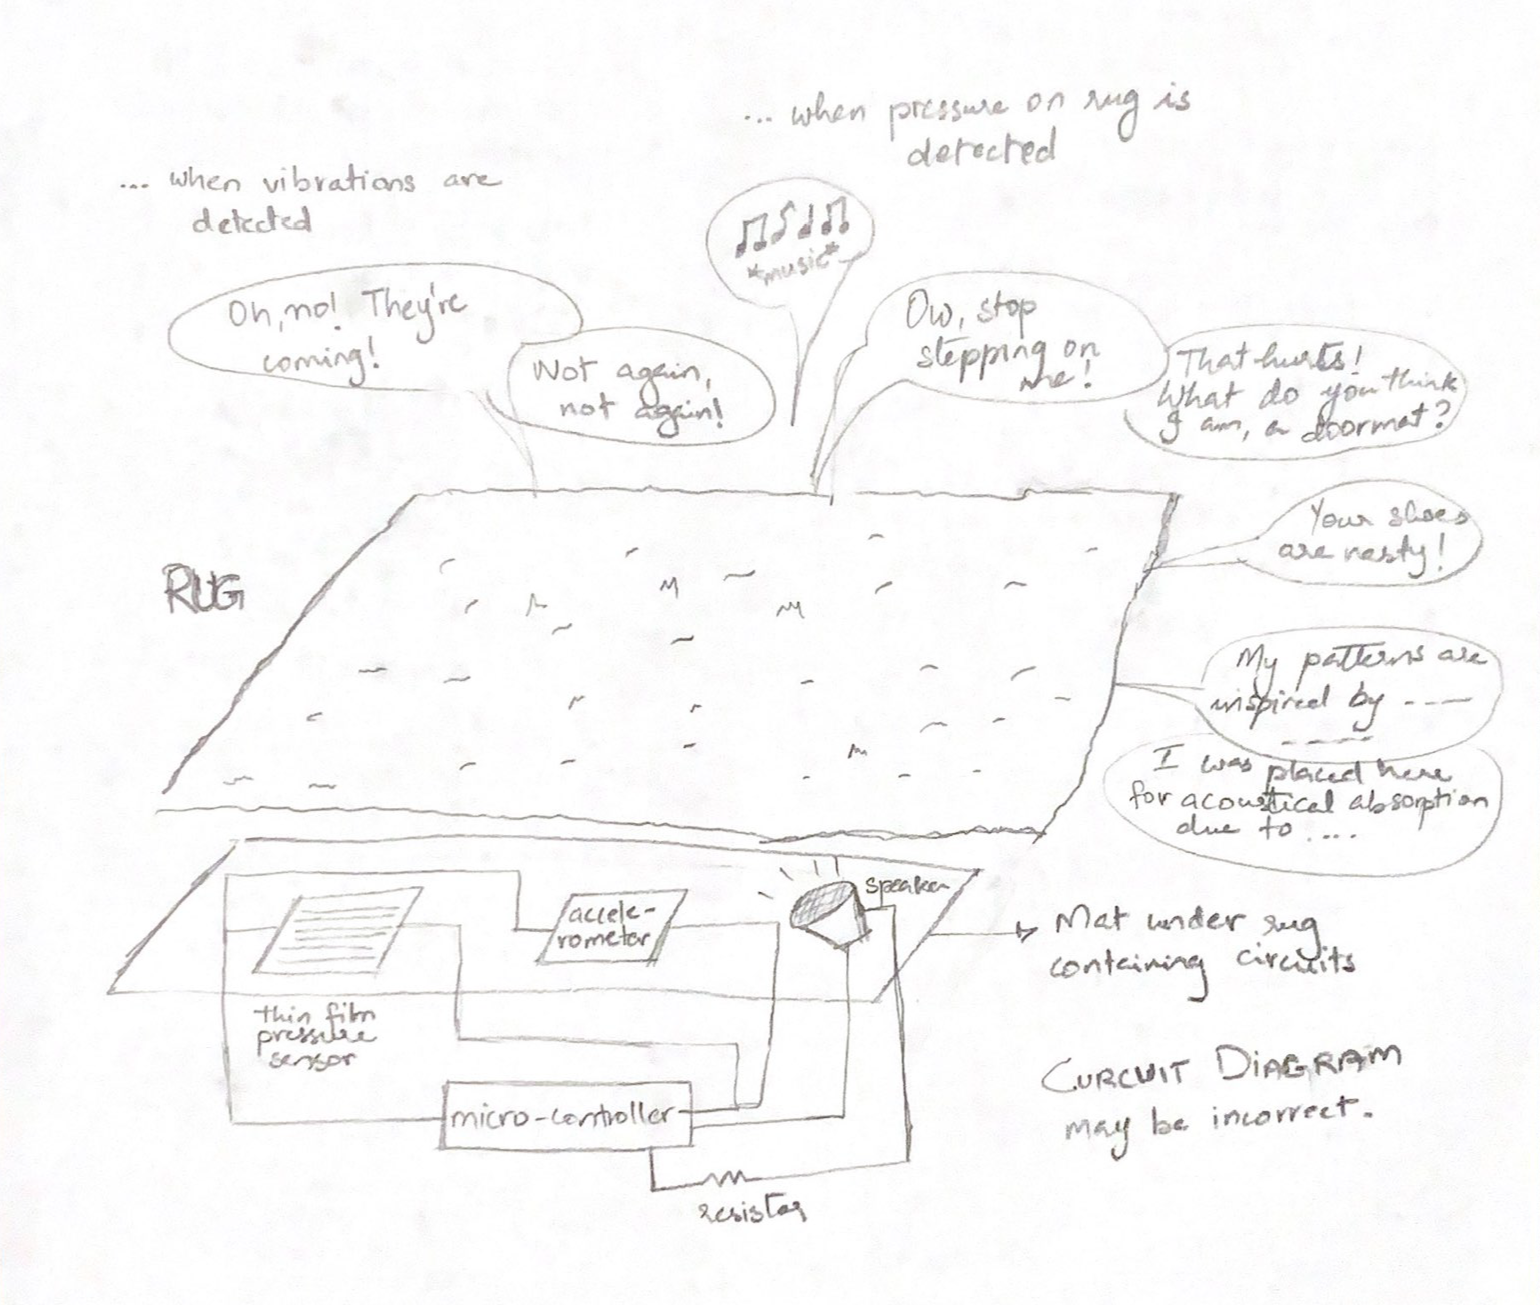 ... when pressure on rug is
detected
... when vibrations are
detected
*music*
Oh, no! They're
coming!
Not again,
not again!
Ow, stop
stepping on
me!
That hurts!
What do you think
I am, a doormat?
Your shoes
are nasty!
RUG
My patterns are
inspired by ----
-----
I was placed here
for acoustical absorption
due to ....
speaker
accele-
rometer
Mat under rug
containing circuits
thin film
pressure
sensor
CURCUIT DIAGRAM
may be incorrect.
micro-controller
resistor